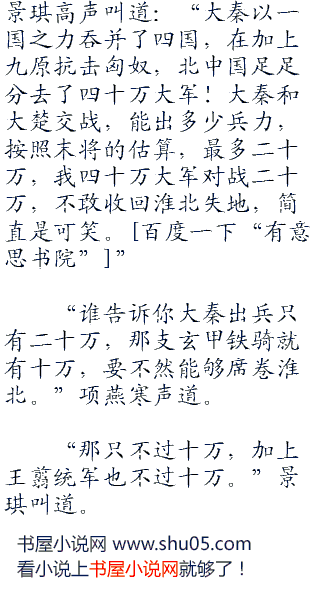 景琪高声叫道：“大秦以一
国之力吞并了四国，在加上
九原抗击匈奴，北中国足足
分去了四十万大军！大秦和
大楚交战，能出多少兵力，
按照末将的估算，最多二十
万，我四十万大军对战二十
万，不敢收回淮北失地，简
直是可笑。[百度一下“有意
思书院”]”
“谁告诉你大秦出兵只
有二十万，那支玄甲铁骑就
有十万，要不然能够席卷淮
北。”项燕寒声道。
“那只不过十万，加上
王翦统军也不过十万。”景
琪叫道。
书屋小说网 www.shu05.com
看小说上书屋小说网就够了！